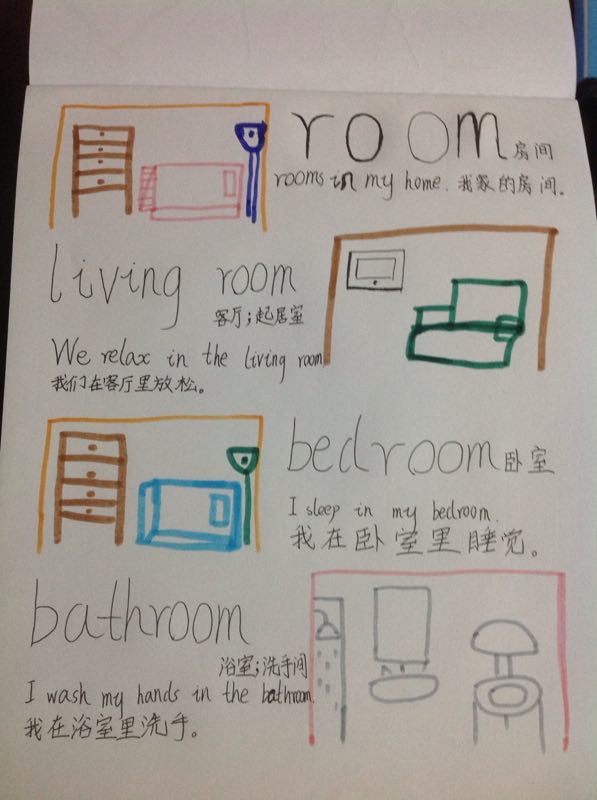 room 房间
rooms in my home. 我家的房间。
living room
客厅;起居室
We relax in the living room
我们在客厅里放松。
bedroom 卧室
I sleep in my bedroom.
我在卧室里睡觉。
bathroom
浴室;洗手间
I wash my hands in the bathroom.
我在浴室里洗手。